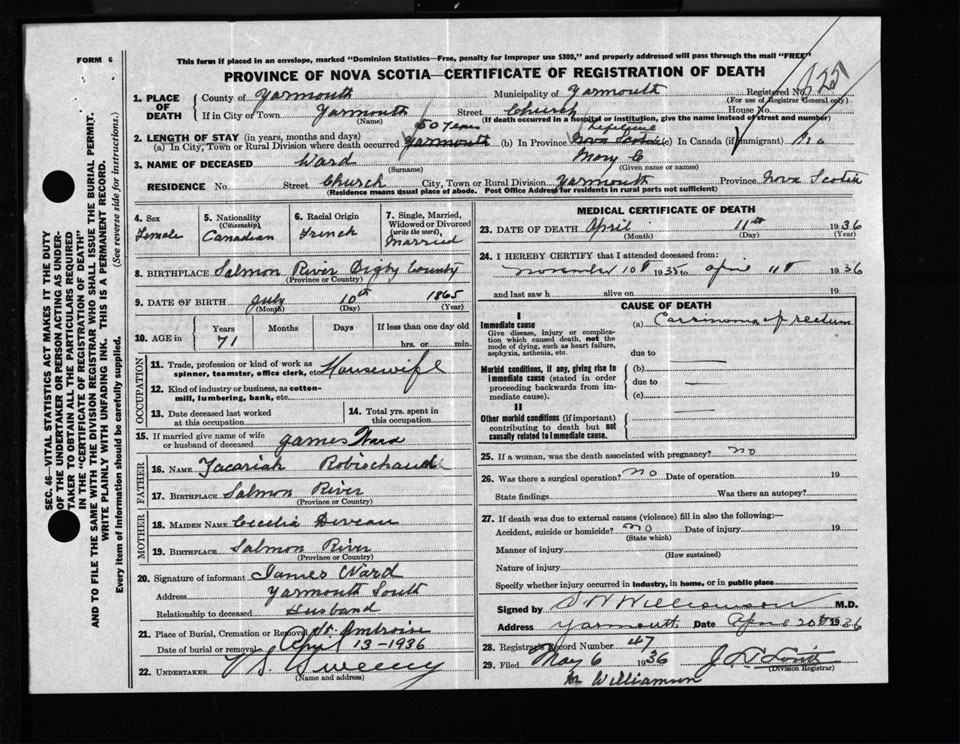 FORM 6
This form if placed in an envelope, marked "Dominion Statistics—Free, penalty for improper use $300," and properly addressed will pass through the mail "FREE"
PROVINCE OF NOVA SCOTIA—CERTIFICATE OF REGISTRATION OF DEATH
1. PLACE OF DEATH
County of Yarmouth Municipality of Yarmouth Registered No.
(For use of Registrar General only)
If in City or Town Yarmouth Street Church House No.
(Name) (If death occurred in a hospital or institution, give the name instead of street and number)
2. LENGTH OF STAY (in years, months and days) 50 Years Lifetime
(a) In City, Town or Rural Division where death occurred Yarmouth (b) In Province Nova Scotia (c) In Canada (if immigrant) No
3. NAME OF DECEASED Ward Mary C
(Surname) (Given name or names)
RESIDENCE No. Street Church City, Town or Rural Division Yarmouth Province Nova Scotia
(Residence means usual place of abode. Post Office Address for residents in rural parts not sufficient)
4. Sex
Female
5. Nationality
(Citizenship)
Canadian
6. Racial Origin
French
7. Single, Married, Widowed or Divorced
(write the word)
Married
8. BIRTHPLACE Salmon River Digby County
(Province or Country)
9. DATE OF BIRTH July 10th 1865
(Month) (Day) (Year)
10. AGE in
Years Months Days If less than one day old
71 hrs. or min.
OCCUPATION
11. Trade, profession or kind of work as
spinner, teamster, office clerk, etc. Housewife
12. Kind of industry or business, as cotton-
mill, lumbering, bank, etc.
13. Date deceased last worked
at this occupation
14. Total yrs. spent in
this occupation
15. If married give name of wife
or husband of deceased James Ward
FATHER
16. NAME Zacariah Robischaud
17. BIRTHPLACE Salmon River
(Province or Country)
MOTHER
18. MAIDEN NAME Cecelia Deveau
19. BIRTHPLACE Salmon River
(Province or Country)
20. Signature of informant James Ward
Address Yarmouth South
Relationship to deceased Husband
21. Place of Burial, Cremation or Removal St. Ambroise
Date of burial or removal April 13-1936
22. UNDERTAKER V S Sweeny
(Name and address)
MEDICAL CERTIFICATE OF DEATH
23. DATE OF DEATH April 11th 1936
(Month) (Day) (Year)
24. I HEREBY CERTIFY that I attended deceased from:
November 10th 1935 to April 11th 1936
and last saw h alive on 19
CAUSE OF DEATH
I
Immediate cause
Give disease, injury or complica-
tion which caused death, not the
mode of dying, such as heart failure,
asphyxia, asthenia, etc.
(a) Carcinoma of rectum
due to
Morbid conditions, if any, giving rise to
immediate cause (stated in order
proceeding backwards from im-
mediate cause).
(b)
due to
(c)
II
Other morbid conditions (if important)
contributing to death but not
causally related to immediate cause.
25. If a woman, was the death associated with pregnancy? no
26. Was there a surgical operation? no Date of operation 19
State findings Was there an autopsy?
27. If death was due to external causes (violence) fill in also the following:—
Accident, suicide or homicide? no Date of injury 19
(State which)
Manner of injury
(How sustained)
Nature of injury
Specify whether injury occurred in industry, in home, or in public place
Signed by S W Williamson M.D.
Address Yarmouth Date April 20th 1936
28. Registrar's Record Number 47
29. Filed May 6 1936
(Division Registrar)
Williamson
SEC. 46—VITAL STATISTICS ACT MAKES IT THE DUTY
OF THE UNDERTAKER OR PERSON ACTING AS UNDER-
TAKER TO OBTAIN ALL THE PARTICULARS REQUIRED
IN THE "CERTIFICATE OF REGISTRATION OF DEATH"
AND TO FILE THE SAME WITH THE DIVISION REGISTRAR WHO SHALL ISSUE THE BURIAL PERMIT.
WRITE PLAINLY WITH UNFADING INK. THIS IS A PERMANENT RECORD.
Every item of information should be carefully supplied. (See reverse side for instructions.)